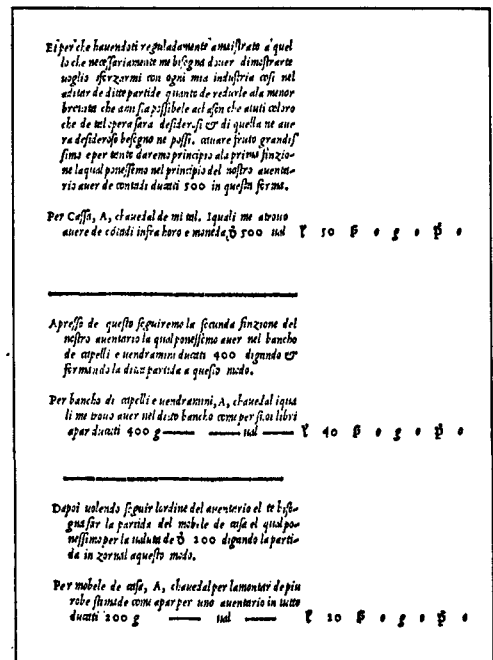 E i per che hauendoti reguladamente amaistrato a quel
lo che necessariamente me bisogna douer dimostrarte
uoglio sforzarmi con ogni mia industria cosi nel
aditar de ditte partide quanto de redurle ala menor
breuita che ami sia possibele
che de tal opera sara desiderosi & di quella ne aue
ra desideroso besogno ne possi. cauare fruto grandis
simo e per tanto daremo principio ala prima finzio-
ne laqual ponessemo nel principio del nostro auenta-
rio auer de contadi ducati 500 in questa forma.
Per Cassa, A, chauedal de mi tal. Iquali me atrouo
auere de cótadi infra horo e moneda 500 ual 50 ß 0 g 0 p 0
Apresso de questo seguiremo la secunda finzione del
nostro auentario la qual ponessimo auer nel bancho
de capelli e uendramini ducati 400 digando &
formando la ditta partida a questo modo.
Per bancho di capelli e uendramini, A, chauedal iqua
li me trouo auer nel ditto bancho come per suoi libri
apar ducati 400 g —— —— ual —— 40 ß 0 g 0 p 0
Dapoi uolendo seguir lordine del auentario el te biso-
gna far la partida del mobile de casa el qual po-
nessimo per la ualuta de 200 digando la parti-
da in zornal aquesto modo.
Per mobele de casa, A, chauedal per lamontar de piu
robe stimade come apar per uno auentario in tutto
ducati 200 g —— ual —— 20 ß 0 g 0 p 0